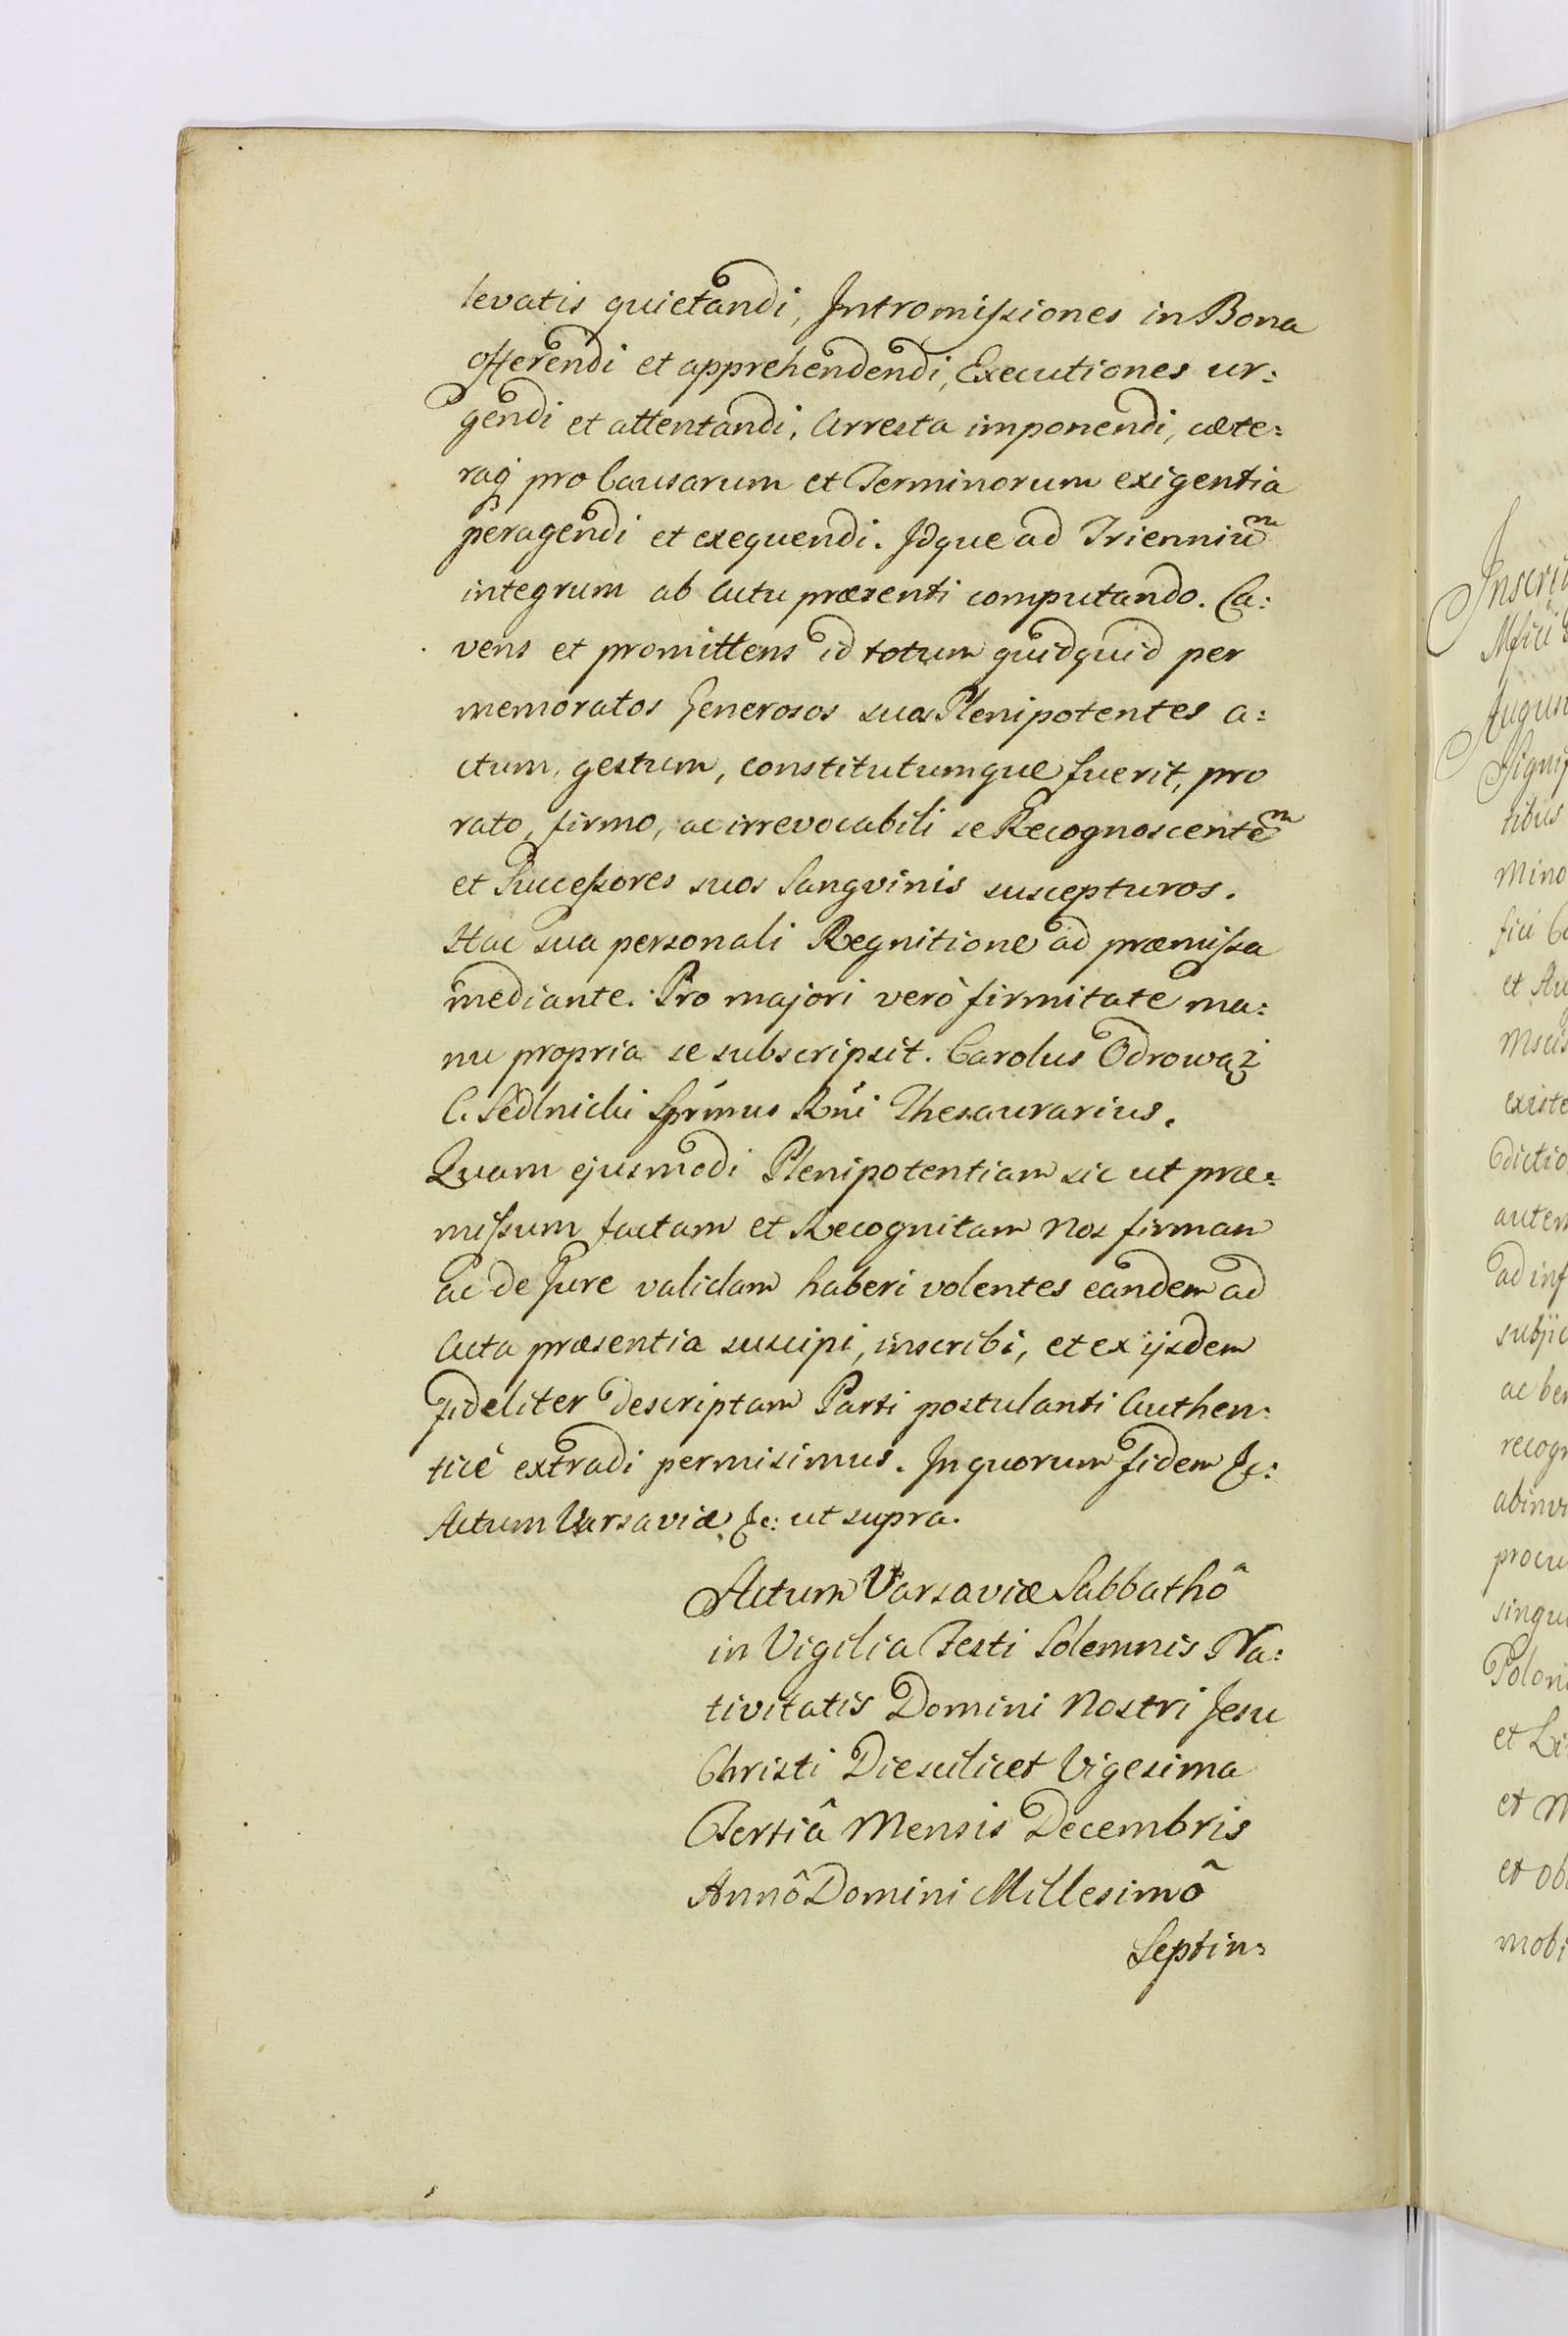 levatis quietandi, Intromissiones in Bona
offerendi et apprehendendi, Executiones ur:
gendi et attentandi, Arresta imponendi, cæte:
raq́ pro Causarum et Terminorum exigentia
peragendi et exequendi. Idque ad Trienniũm
integrum ab Actu præsenti computando. Ca:
vens et promittens id totum quidquid per
memoratos Generosos suos Plenipotentes a:
ctum, gestum, constitutumque fuerit, pro
rato, firmo, ac irrevocabili se Recognoscentẽm
et Successores suos Sangvinis suscepturos.
Hac sua personali Regnitione ad præmissa
mediante. Pro majori verò firmitate ma:
nu propria se subscripsit. Carolus Odrowąż
C. Sedlnicki Sprẽmus Rńi Thesaurarius.
Quam ejusmodi Plenipotentiam sic ut præ:
missum factam et Recognitam Nos firmam
ac de Jure validam haberi volentes eandem ad
Acta præsentia suscipi, inscribi, et ex ijsdem
fideliter descriptam Parti postulanti Authen:
ticè extradi permisimus. In quorum fidem &c:
Actum Varsaviæ &c: ut supra.
Actum Varsaviæ Sabbathô
in Vigilia Festi Solemnis Na:
tivitatis Domini Nostri Jesu
Christi Die scilicet Vigesima
Tertiâ Mensis Decembris
Annô Domini Millesimô
Septin:
Mfici
tibus
Mino
et Au
existe
autem
ad inf
recogn
singu
Poloni
et Li
et M
et ob
mobi